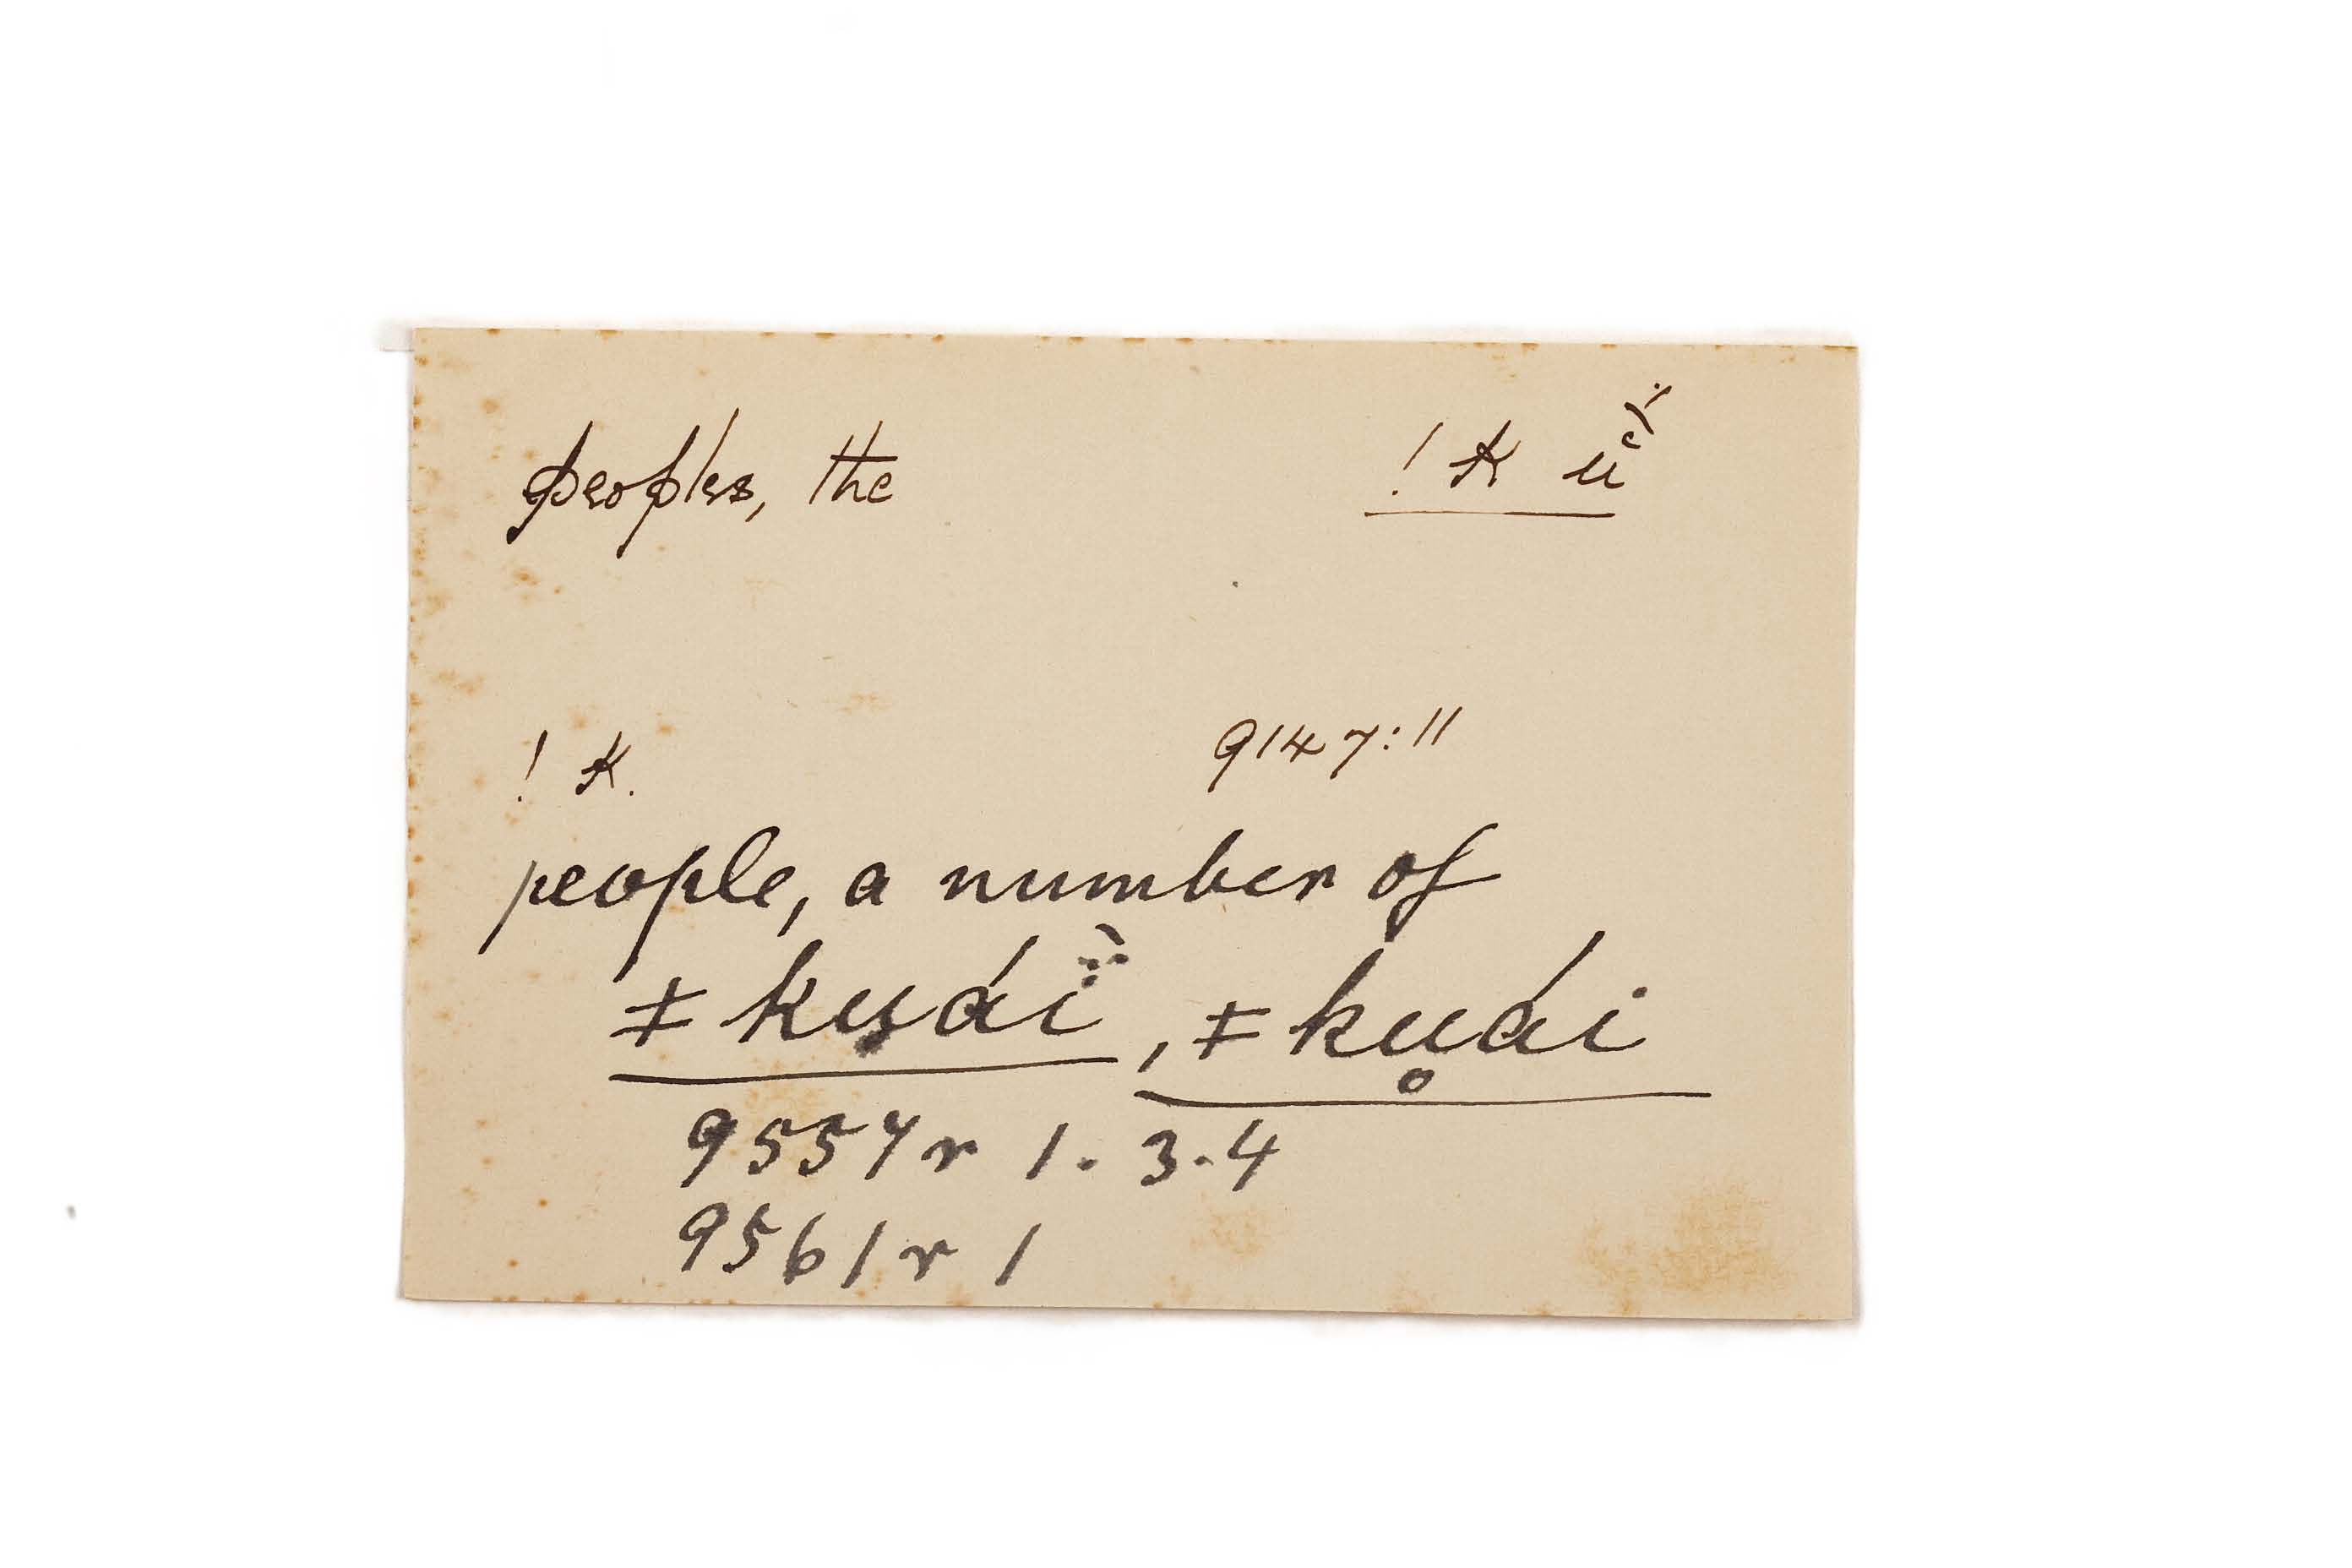 peoples, the !k ü
!k. 9147:11
people, a number of
ǂkuái, ǂku̥ái
9557r 1. 3.4
9561r 1